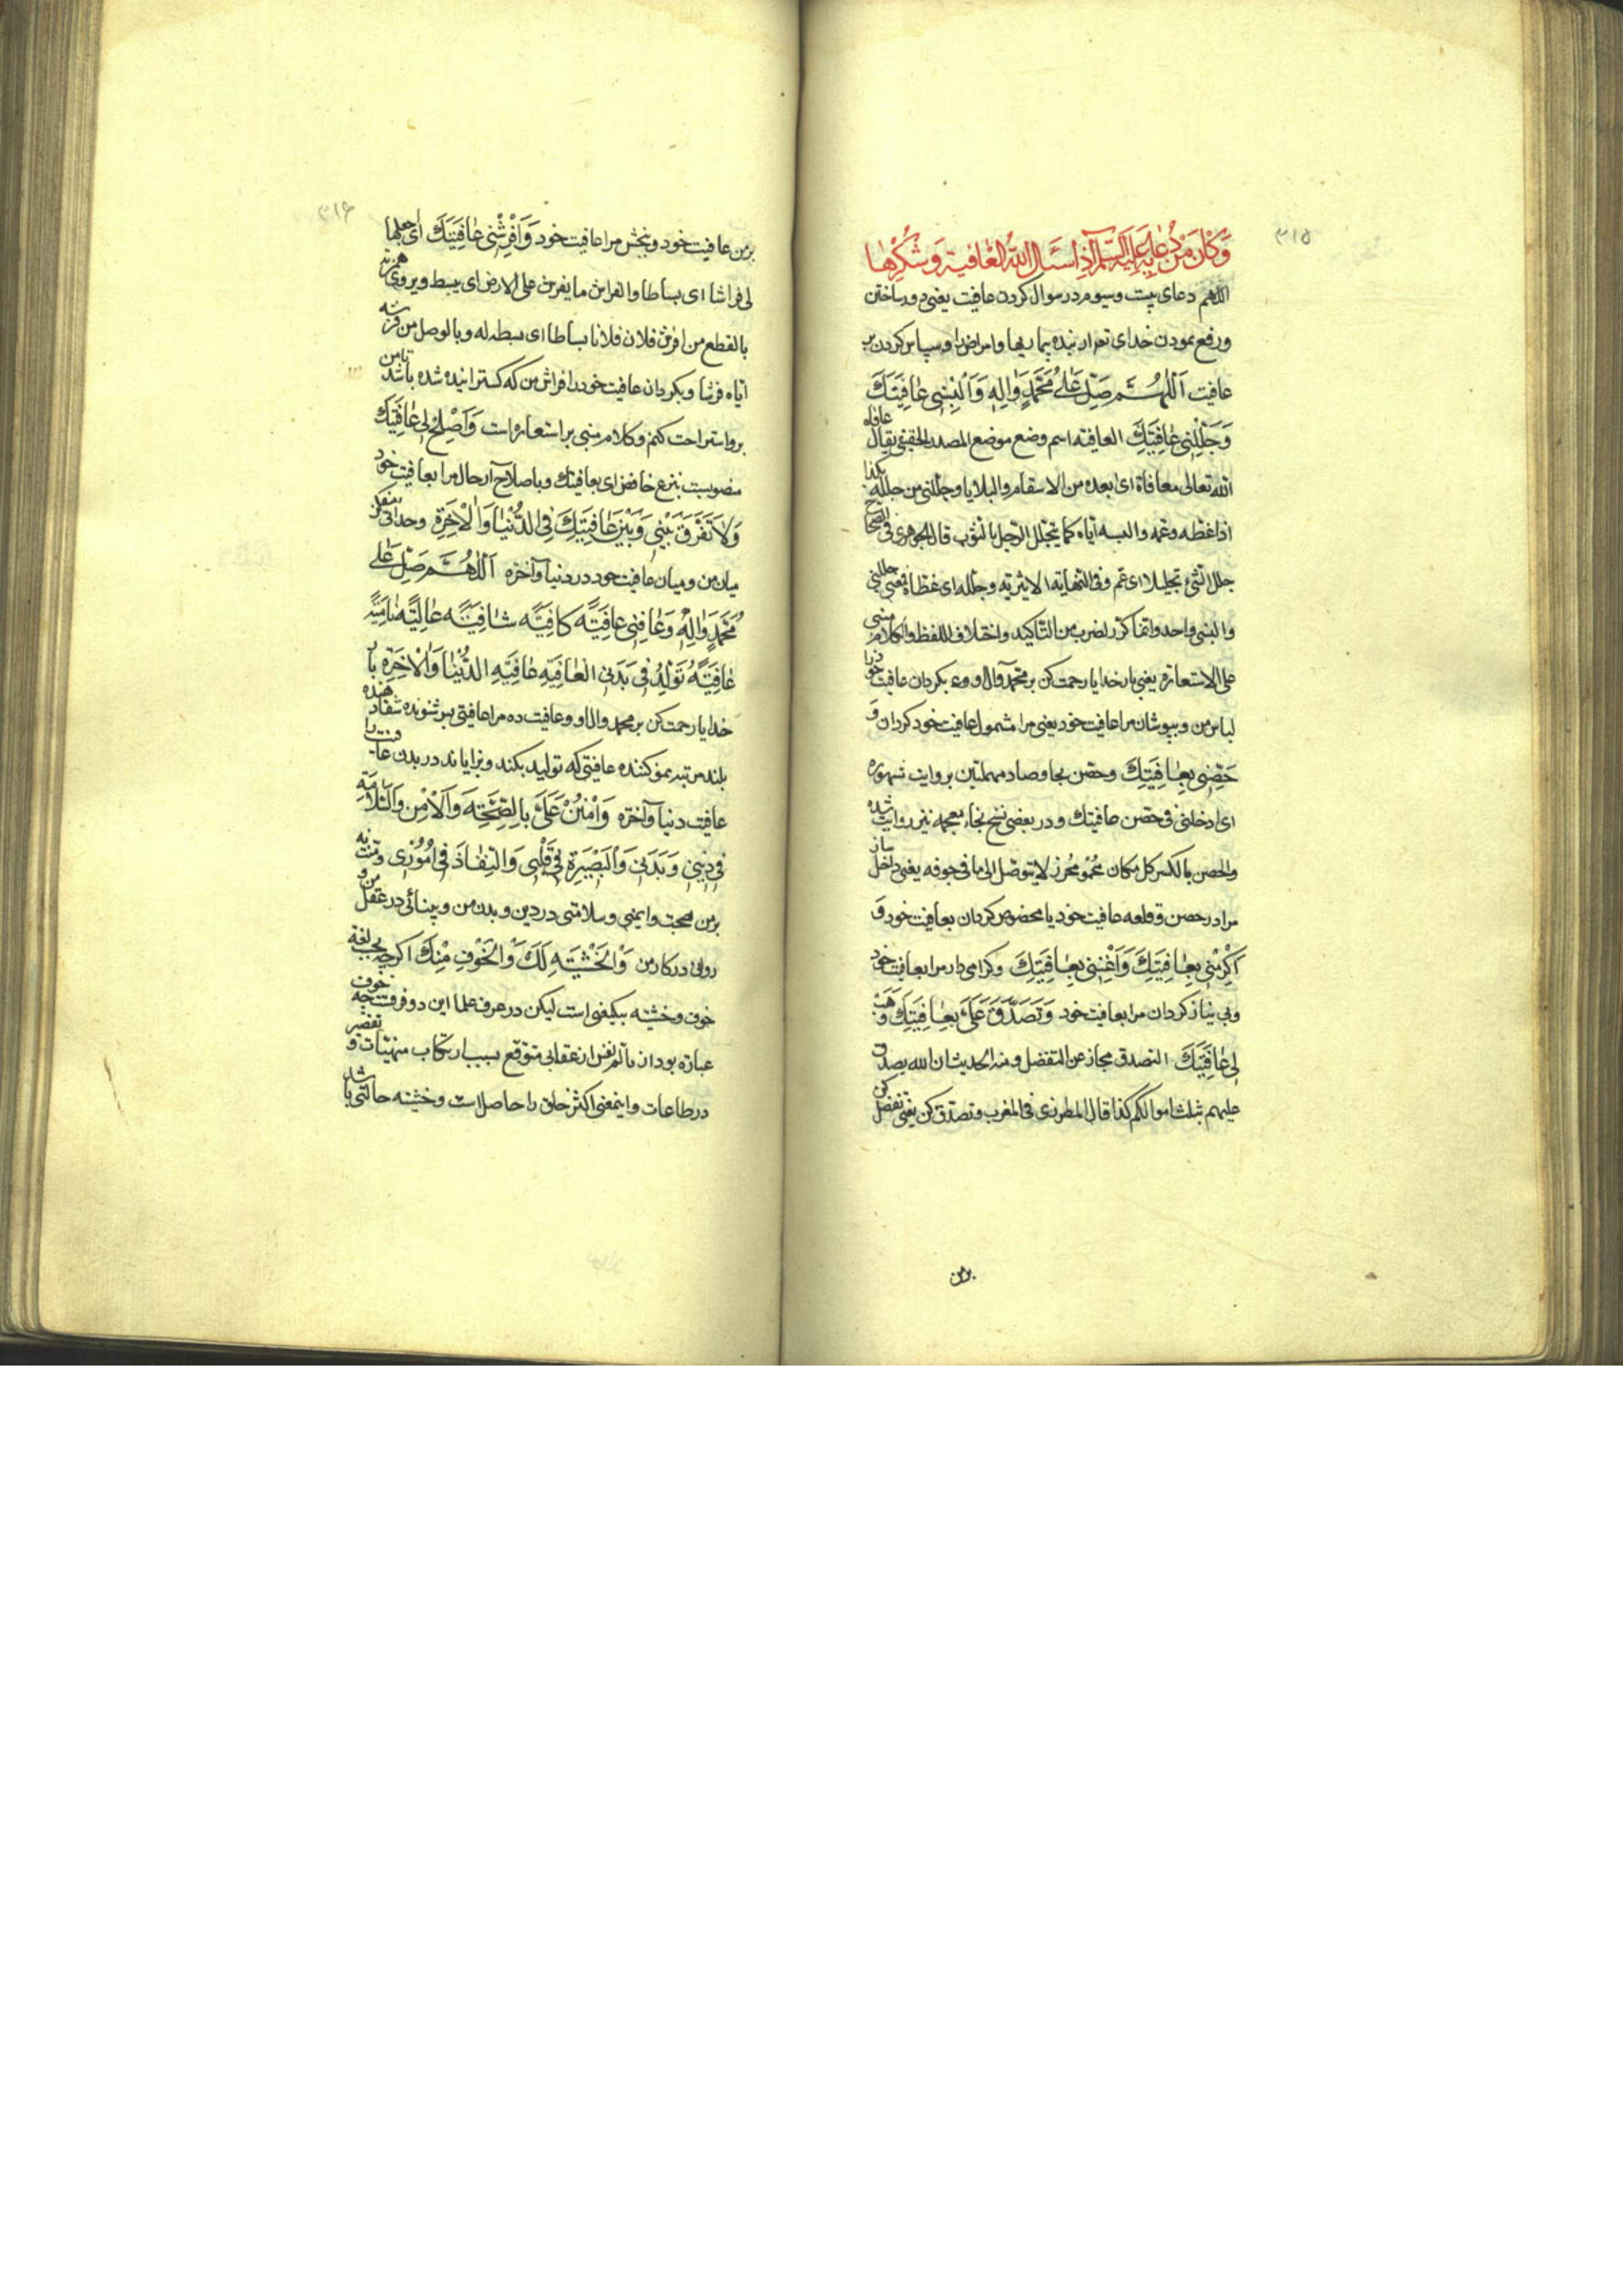 ٣١٥
وَكَانَ مِنْ دُعَائِهِ عَلَيْهِ السَّلَام اِذَا سَئَالَ اللهَ الْعَافِيَةَ وَشُكْرَهَا
اللهم دعای بیست وسیوم در سوال کردن عافیت یعنی دور ساختن
ورفع نمودن خدای تعم از بنده بیماریها وامراض را وسپاس کردن بر
عافیت اَللّٰهُمَّ صَلِّ عَلٰى مُحَمَّدٍ وَاٰلِهٖ وَاَلْبِسْنِى عَافِيَتَكَ
وَجَلِّلْنِى عَافِيَتَكَ العافیته اسم وضع موضع المصدر الحقیقی یقال عافاه
الله تعالی معافاة ای ابعده من الاسقام والبلایا وجللنی من جلله بکذا
اذا غطه وعمه والبسه ایاه کما یتجلل الرجل بالثوب قال الجوهری فی الصحاح
جلل الشئ تجلیلا ای عم وفی النهایة الاثیریه وجلله ای غطاه فمعنی جللنی
والبسنی واحد وانما کرر لضرب من التاکید واختلاف اللفظ والکلام مبنی
علی الاستعارة یعنی بار خدایا رحمت کن بر محمد وآل او و بکردان عافیت خود را
لباس من وبپوشان مرا عافیت خود یعنی مرا مشمول عافیت خود کردان وَ
حَصِّنِّى بِعَافِيَتِكَ وحصن بحا وصاد مهملتین بروایت شهوره
ای ادخلنی فی حصن عافیتک ودر بعضی نسخ بخاء معجمه نیز روایت شده
والحصن بالکسر کل مکان محمو محرز لایتوصل الی ما فی جوفه یعنی داخل ساز
مرا در حصن وقلعه عافیت خود یا مخصوص کردان بعافیت خود وَ
اَكْرِمْنِى بِعَافِيَتِكَ وَاَغْنِنِى بِعَافِيَتِكَ وکرامی دار مرا بعافیت خود
وبی نیاز کردان مرا بعافیت خود وَتَصَدَّقْ عَلَىَّ بِعَافِيَتِكَ وَهَبْ
لِى عَافِيَتَكَ التصدق مجاز عن التفضل ومنه الحدیث ان الله یصدق
علیهم بثلث اموالکم کذا قال المطرزی فی المغرب وتصدق کن یعنی تفضل کن
برمن
٣١٦
برمن عافیت خود وببخش مرا عافیت خود وَاَفْرِشْنِى عَافِيَتَكَ ای اجعلها
لی فراشا ای بساطا والفراش ما یفرش علی الارض ای یبسط ویروی همزته
بالقطع من افرش فلان فلانا بساطا ای بسطه له وبالوصل من فرشه
ایاه فرشا وبکردان عافیت خود را فراش من که کسترانیده شده باشد تا من
برو استراحت کنم وکلام مبنی بر استعاره است وَاَصْلِحْ لِى عَافِيَتَكَ
منصوبست بنزع خافض ای بعافیتک وباصلاح آر حال مرا بعافیت خود
وَلَا تُفَرِّقْ بَيْنِى وَبَيْنَ عَافِيَتِكَ فِى الدُّنْيَا وَالْاٰخِرَةِ وجدائی میفکن
میان من ومیان عافیت خود در دنیا وآخره اَللّٰهُمَّ صَلِّ عَلٰى
مُحَمَّدٍ وَاٰلِهٖ وَعَافِنِى عَافِيَةً كَافِيَةً شَافِيَةً عَالِيَةً نَامِيَةً
عَافِيَةً تُوَلِّدُ فِى بَدَنِى الْعَافِيَةَ عَافِيَةَ الدُّنْيَا وَالْاٰخِرَةِ بار
خدایا رحمت کن بر محمد وال او وعافیت ده مرا عافیتی بس شنونده شفا دهنده
بلند مرتبه نمو کننده عافیتی که تولید بکند وبزایاند در بدن عافیت را
عافیت دنیا وآخره وَامْنُنْ عَلَىَّ بِالصِّحَّةِ وَالْاَمْنِ وَالسَّلَامَةِ
فِى دِينِى وَبَدَنِى وَالْبَصِيرَةِ فِى قَلْبِى وَالنَّفَاذِ فِى اُمُورِى ومنت نه
برمن بصحت وایمنی وسلامتی در دین وبدن من وبینائی در عقل من و
روائی در کار من وَالْخَشْيَةِ لَكَ وَالْخَوْفِ مِنْكَ اکرچه بحسب لغة
خوف وخشیته بیکمعنی است لیکن در عرف علما این دو فرقست چه خوف
عبارة بود از تألم نفس از عقابی متوقع بسبب ارتکاب منهیات وتقصیر
در طاعات واینمعنی اکثر خلق را حاصل است وخشیته حالتی باشد